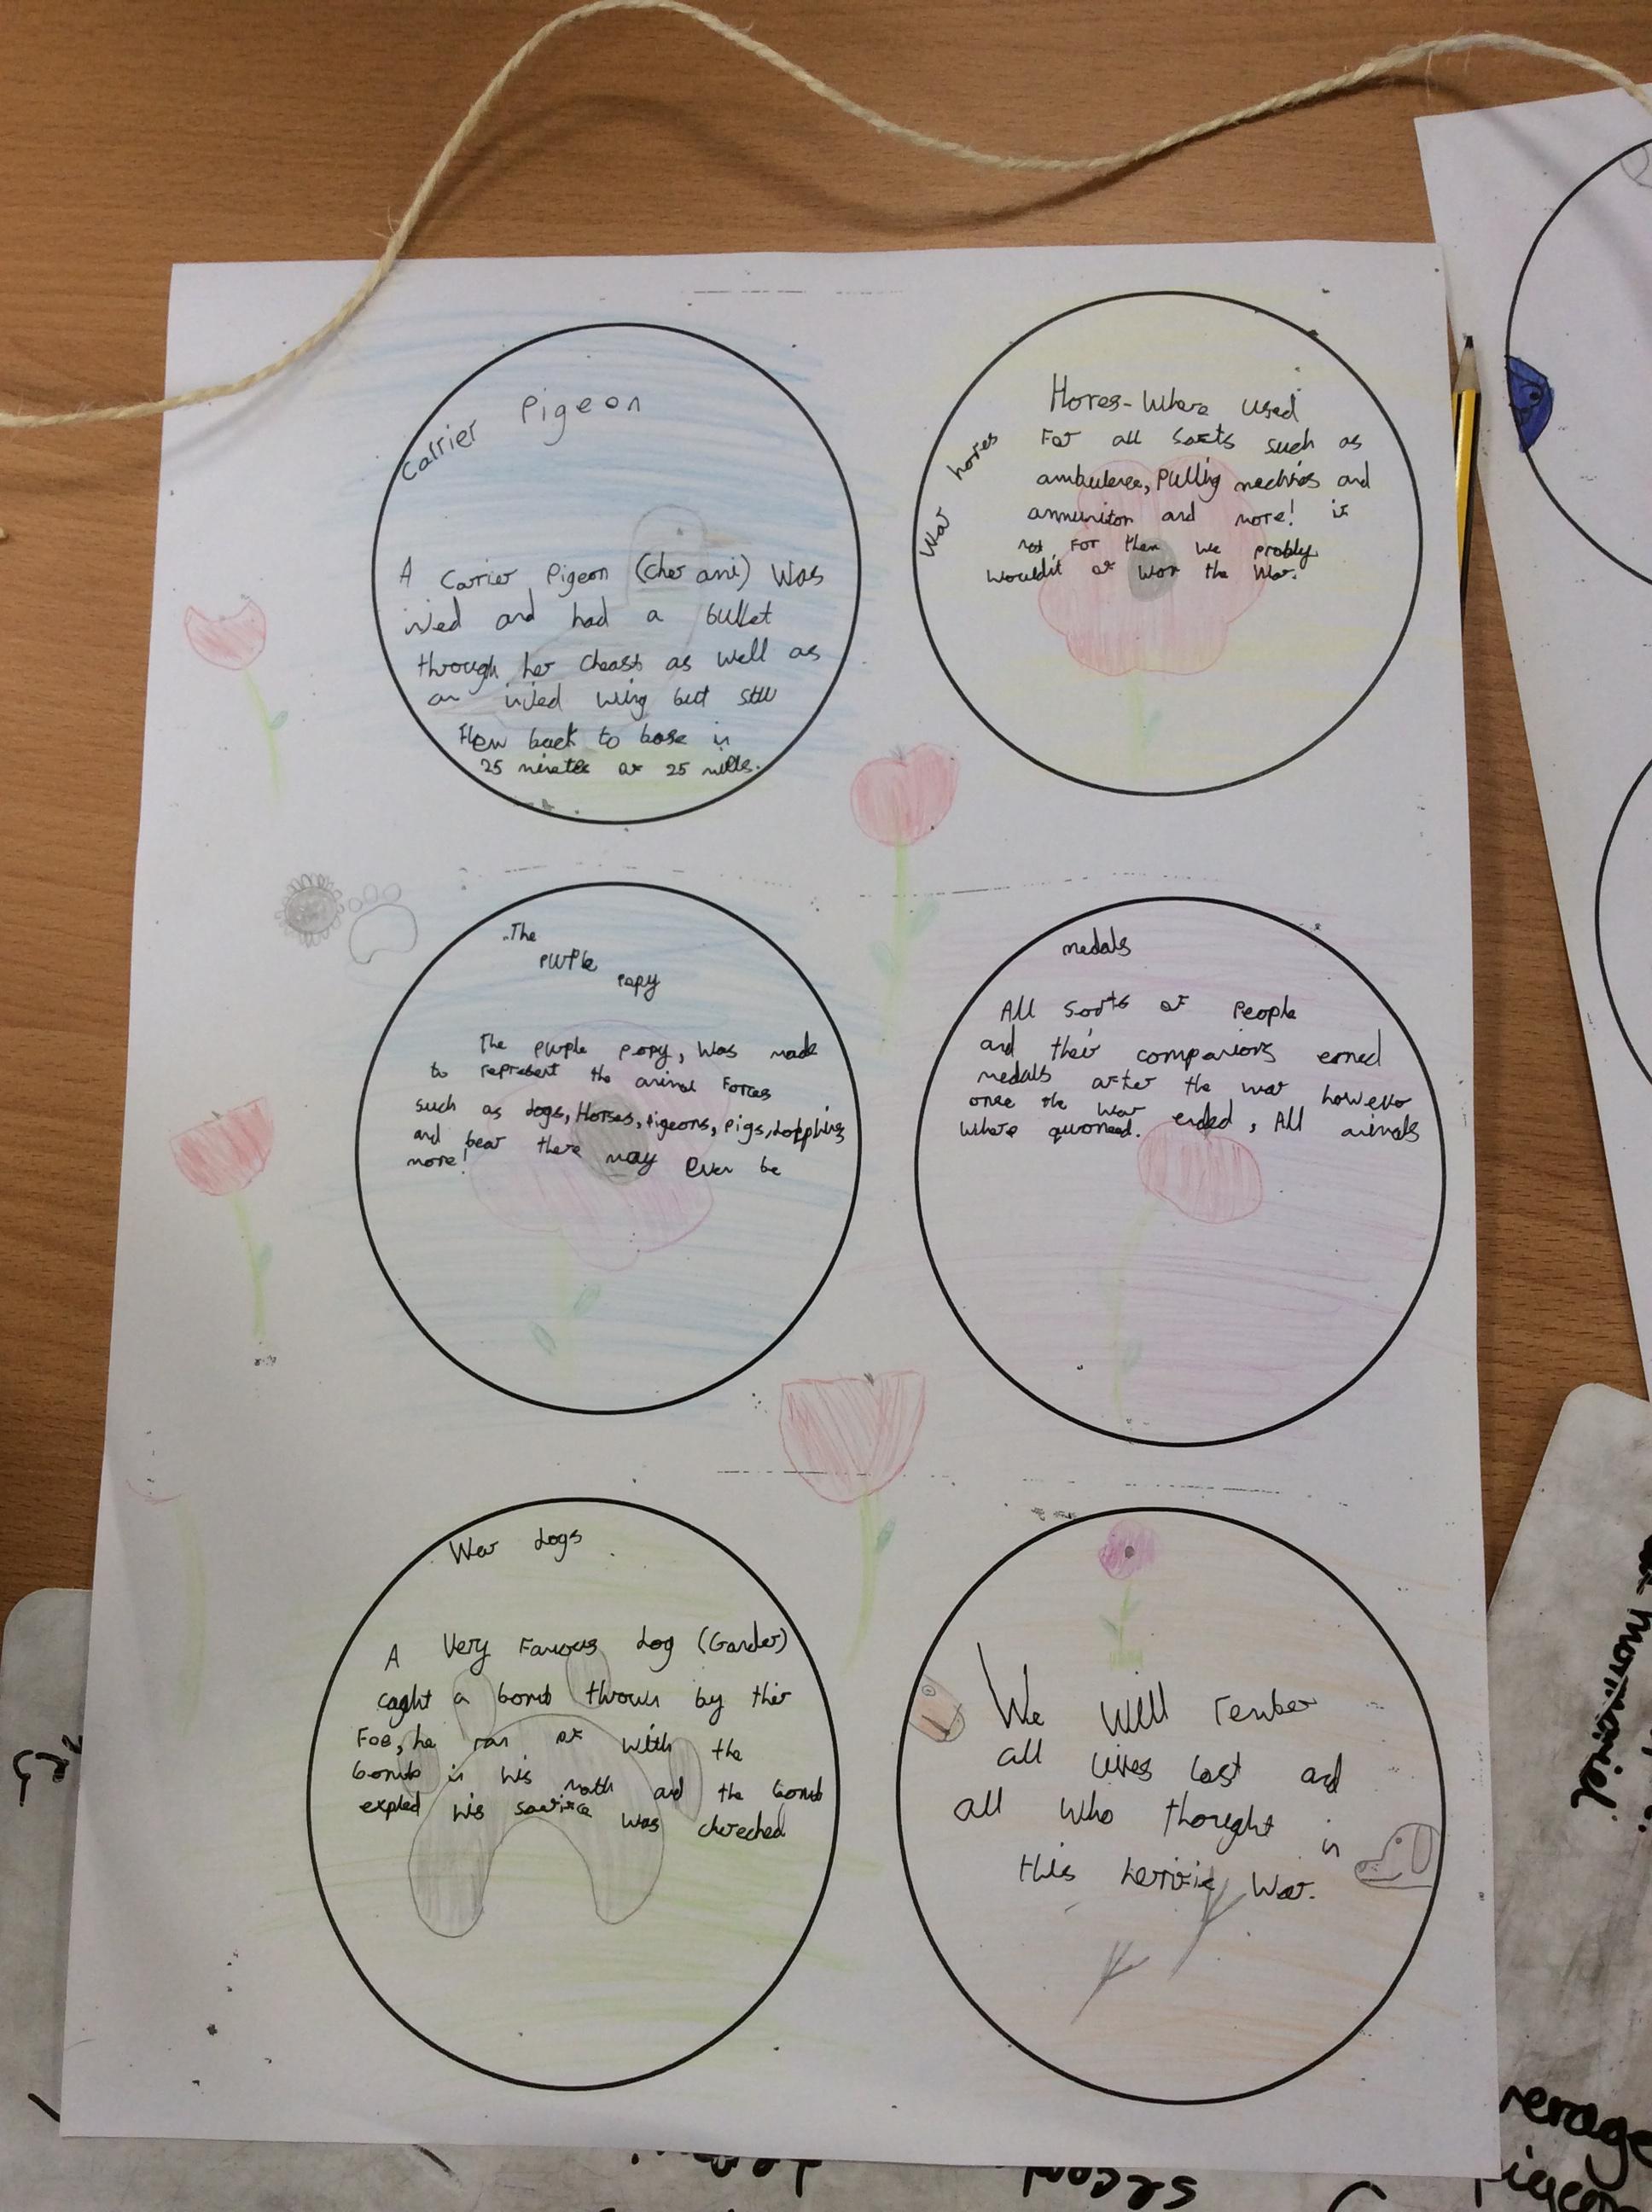 Carrier Pigeon
A Carrier Pigeon (Cher ami) Was
and had a bullet
through her Cheast as well as
an wing but still
Flew back to base in
25 minates of 25 mills.
War hores
Hores-Where used
For all Sorts such as
ambulence, Pulling and
ammuniton and more! if
not For them we probly
wouldit of won the War.
The
purple
Popy
The purple popy, Was made
to represent the animal Forces
such as dogs, Horses, Pigeons, Pigs,
and bear there may even be
more!
medals
All Sorts of People
and their companions erned
medals after the war however
once the War ended, All animals
where
War dogs
A Very Famous dog (Gander)
caght a bomb thrown by ther
Foe, he ran of with the
bomb in his moth and the bomb
expled his was
We Will rember
all Lives Lost and
all who thought in
this War.
verage
second